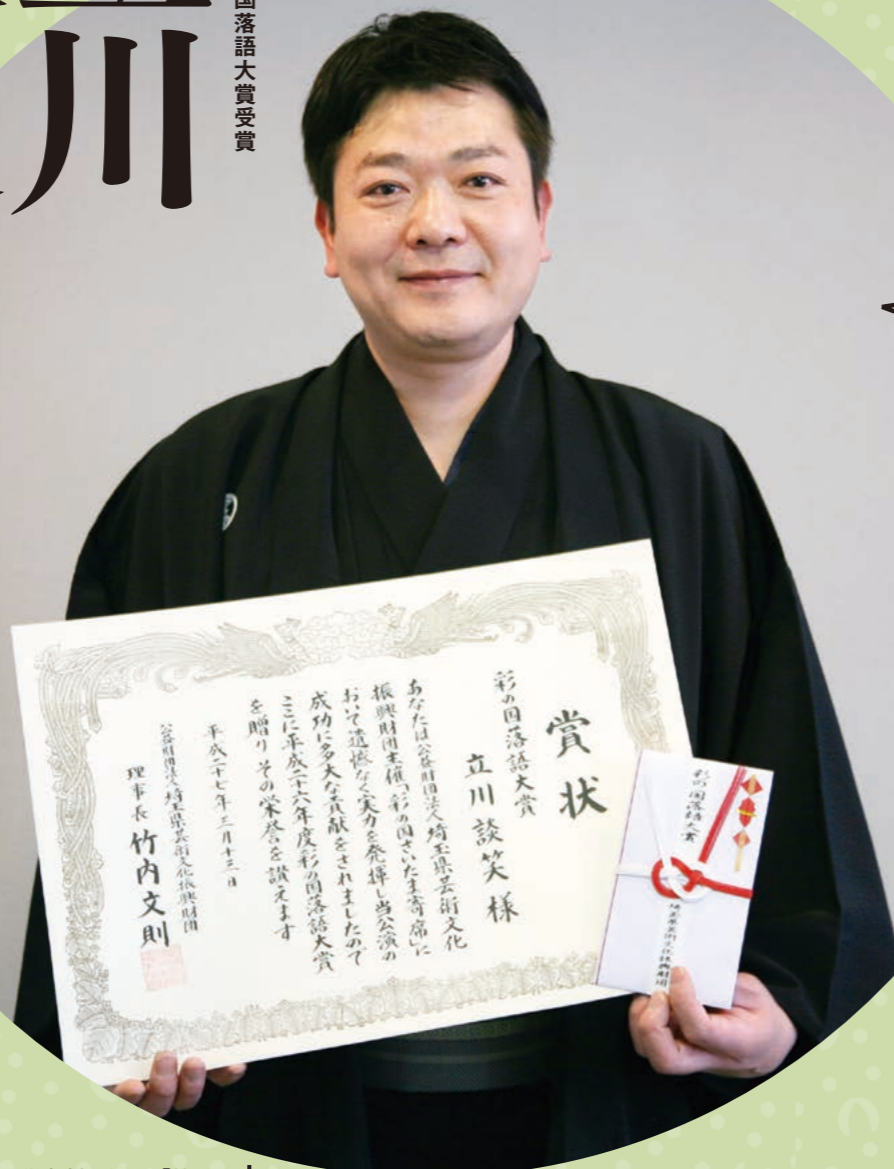 国落語大賞受賞
川
賞状
彩の国落語大賞
立川談笑様
あなたは公益財団法人埼玉県芸術文化
振興財団主催「彩の国さいたま寄席」に
おいて遺憾なく実力を発揮し当公演の
成功に多大な貢献をされましたので
ここに平成二十六年度彩の国落語大賞
を贈りその栄誉を讃えます
平成二十七年三月十三日
公益財団法人埼玉県芸術文化振興財団
理事長 竹内文則
彩の国落語大賞
埼玉県芸術文化振興財団